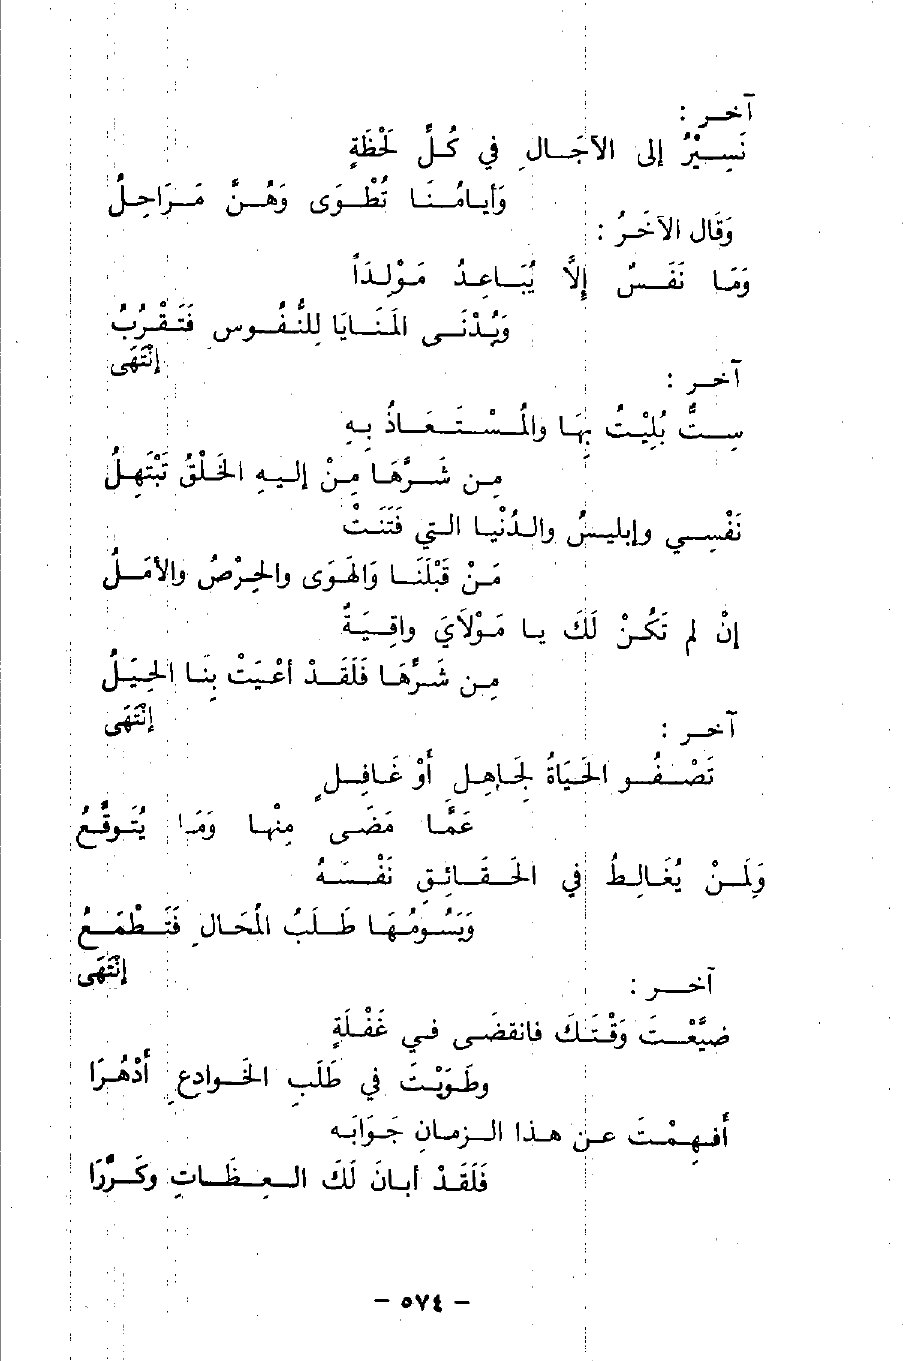 آخر :
نَسِيْرُ إلى الآجَالِ في كُلِّ لَحْظَةٍ
وَأيامُنَا تُطْوَى وَهُنَّ مَرَاحِلُ
وَقَال الآخَرُ :
وَمَا نَفَسٌ إِلاَّ يُبَاعِدُ مَوْلِدَاً
وَيُدْنَى المَنَايَا لِلنُّفُوسِ فَتَقْرُبُ
إنْتَهَى
آخر :
سِتٌّ بُلِيْتُ بِهَا والمُسْتَعَاذُ بِهِ
مِن شَرِّهَا مِنْ إليهِ الخَلْقُ تَبْتَهِلُ
نَفْسِي وإبليسُ والدُنْيا التي فَتَنَتْ
مَنْ قَبْلَنَا وَالهَوَى والحِرْصُ والأمَلُ
إنْ لم تَكُنْ لَكَ يا مَوْلاَيَ واقِيَةٌ
مِن شَرِّهَا فَلَقَدْ أعْيَتْ بِنَا الحِيَلُ
إنْتَهَى
آخر :
تَصْفُو الحَيَاةُ لِجَاهِلٍ أوْ غَافِلٍ
عَمَّا مَضَى مِنْها وَمَا يُتَوقَّعُ
وَلَمَنْ يُغَالِطُ في الحَقَائِقِ نَفْسَهُ
وَيَسُومُهَا طَلَبُ المُحَالِ فَتَطْمَعُ
إنْتَهَى
آخر :
ضيَّعْتَ وَقْتَكَ فانقضَى في غَفْلَةٍ
وطَوَيْتَ في طَلَبِ الخَوادِعِ أدْهُرَا
أفهِمْتَ عن هذا الزمانِ جَوَابَه
فَلَقَدْ أبانَ لَكَ العِظَاتِ وكَرَّرَا
- ٥٧٤ -